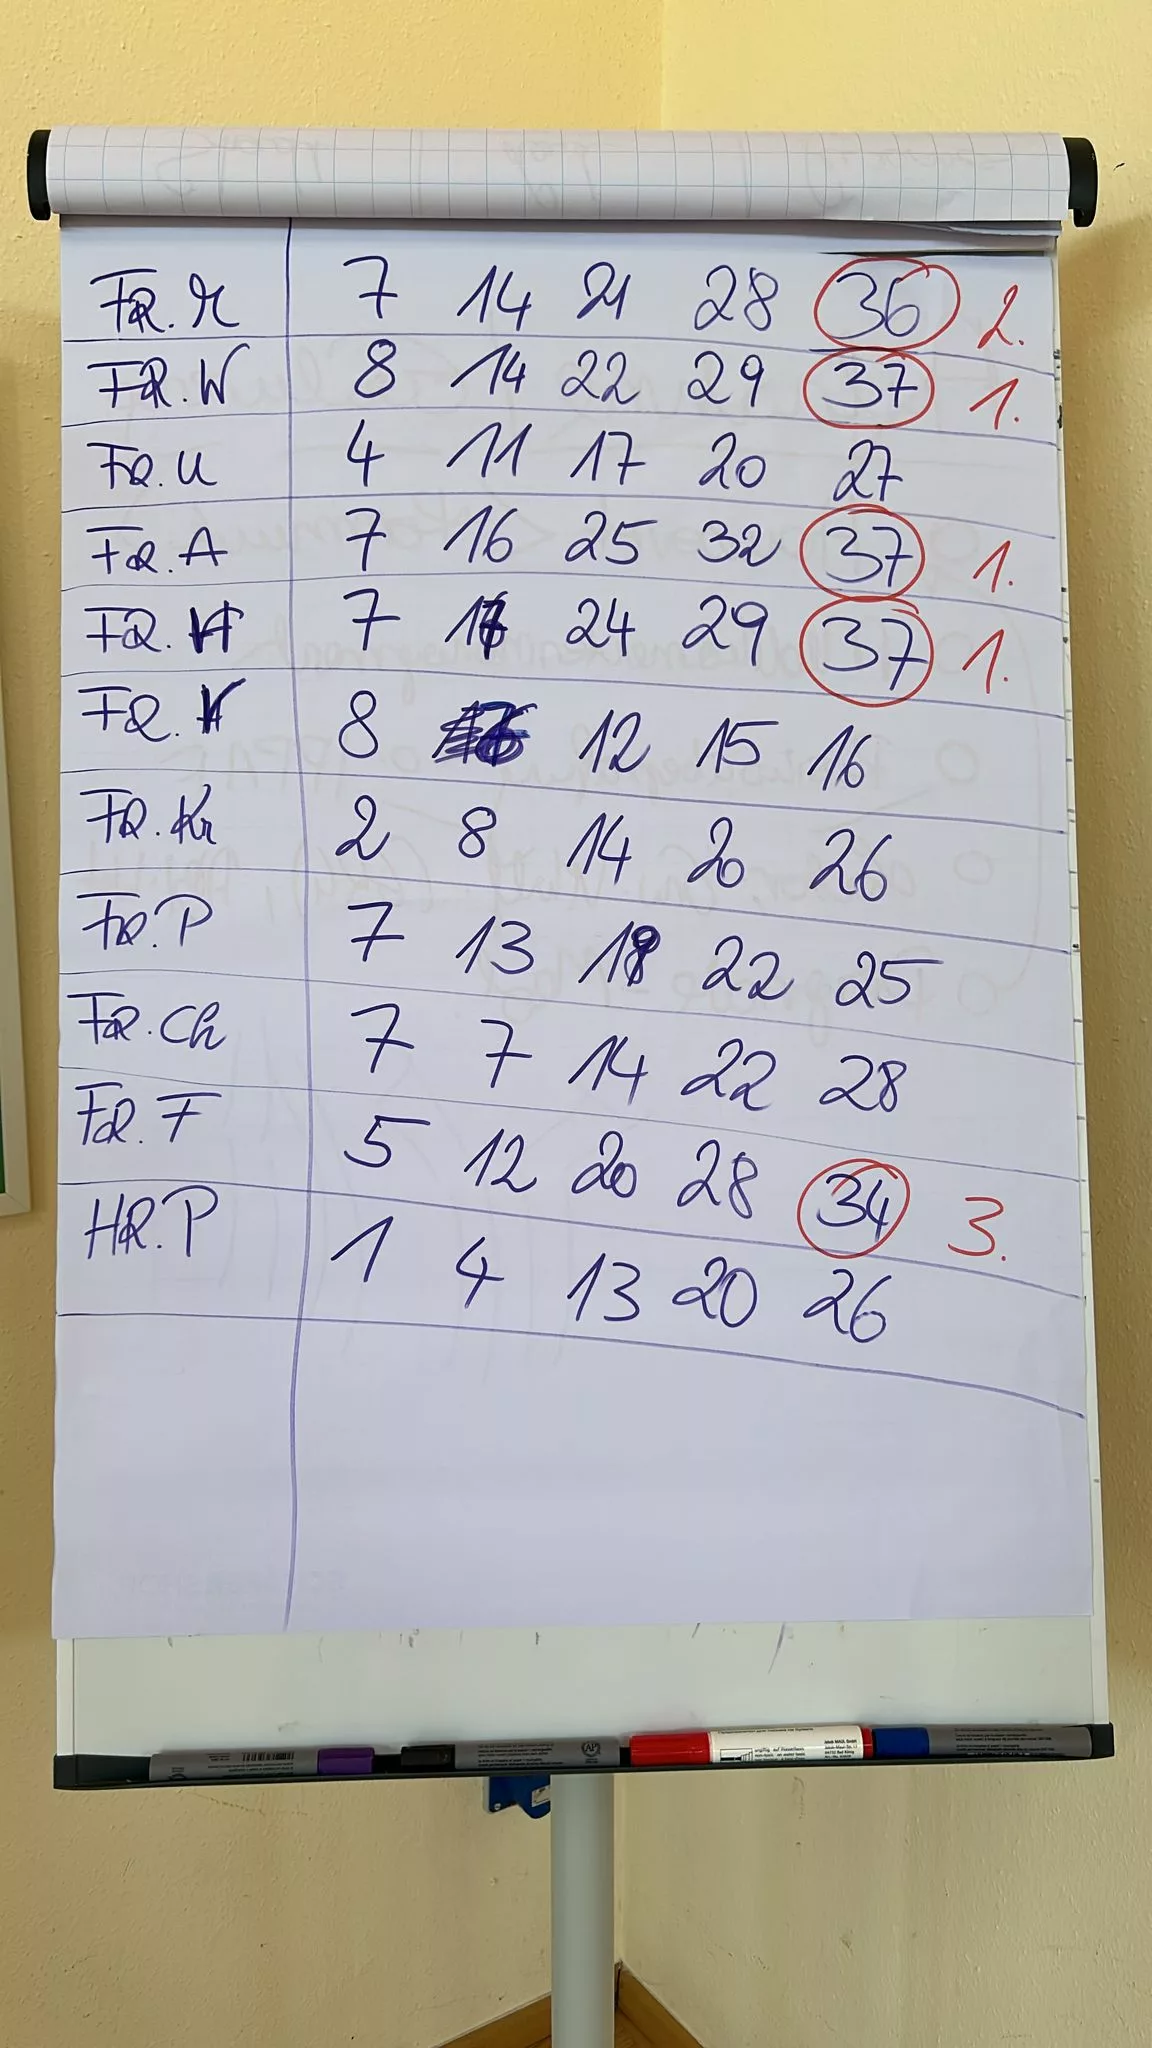 FR. M 7 14 21 28 36 2.
FR. W 8 14 22 29 37 1.
FR. U 4 11 17 20 27
FR. A 7 16 25 32 37 1.
FR. 7 24 29 37 1.
FR. 8 12 15 16
FR. Kr 2 8 14 20 26
FR. P 7 13 19 22 25
FR. Ch 7 7 14 22 28
FR. F 5 12 20 28 34 3.
HR. P 1 4 13 20 26